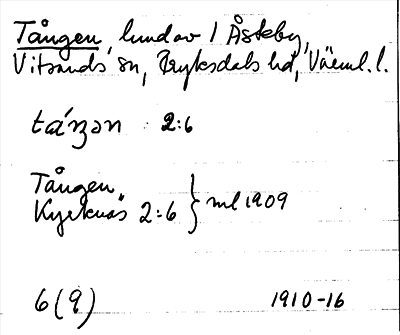 Tången, lund av 1 Åsteby,
Vitsands sn, Fryksdals hd, Värml. l.
táŋən 2:6
Tången,
Kyrknäs 2:6 } ml 1909
6 (9) 1910-16